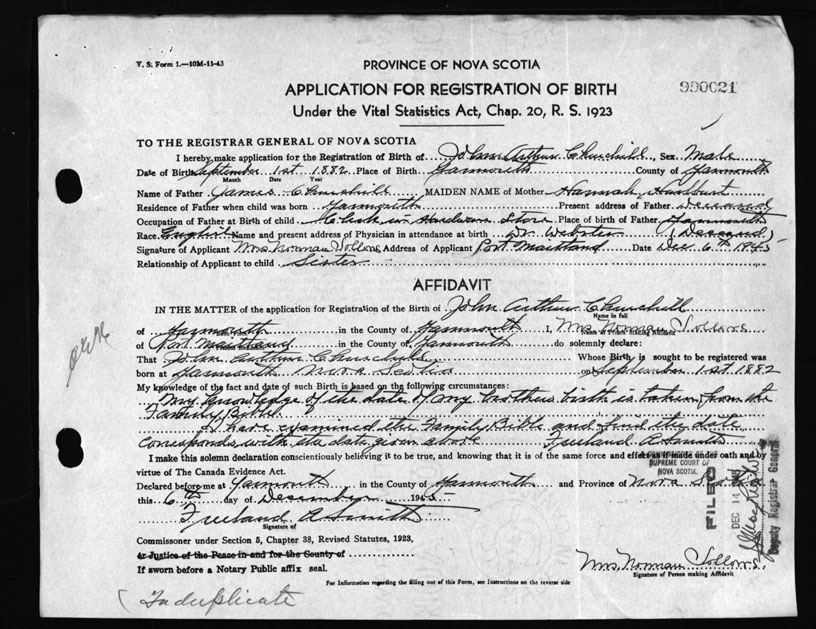 V. S. Form 1.—10M-11-43
PROVINCE OF NOVA SCOTIA
APPLICATION FOR REGISTRATION OF BIRTH
990021
Under the Vital Statistics Act, Chap. 20, R. S. 1923
TO THE REGISTRAR GENERAL OF NOVA SCOTIA
I hereby make application for the Registration of Birth of John Arthur Churchill, Sex Male
Date of Birth September 1st 1882 Place of Birth Yarmouth County of Yarmouth
Month Date Year
Name of Father James Churchill MAIDEN NAME of Mother Hannah
Residence of Father when child was born Yarmouth Present address of Father Deceased
Occupation of Father at Birth of child Clerk in Hardware Store Place of birth of Father Yarmouth
Race English Name and present address of Physician in attendance at birth Dr. Webster (Deceased)
Signature of Applicant Mrs Norman Sollows Address of Applicant Port Maitland Date Dec 6th 1945
Relationship of Applicant to child Sister
AFFIDAVIT
IN THE MATTER of the application for Registration of the Birth of John Arthur Churchill
Name in full
of Yarmouth in the County of Yarmouth I, Mrs Norman Sollows
of Port Maitland in the County of Yarmouth do solemnly declare:
That John Arthur Churchill Whose Birth is sought to be registered was
born at Yarmouth Nova Scotia on September 1st 1882
My knowledge of the fact and date of such Birth is based on the following circumstances:
My knowledge of the date of my brothers birth is taken from the
Family Bible.
I have examined the Family Bible and find the date
corresponds with the date given above Freeland A Smith
I make this solemn declaration conscientiously believing it to be true, and knowing that it is of the same force and effect as if made under oath and by
virtue of The Canada Evidence Act.
SUPREME COURT OF
NOVA SCOTIA
Declared before me at Yarmouth in the County of Yarmouth and Province of Nova Scotia
this 6th day of December 1945
Freeland A Smith
Signature of
FILED
DEC 14 1945
Deputy Registrar General
Commissioner under Section 5, Chapter 38, Revised Statutes, 1923,
or Justice of the Peace in and for the County of
If sworn before a Notary Public affix seal.
Mrs. Norman Sollows.
Signature of Person making Affidavit
For Information regarding the filling out of this Form, see Instructions on the reverse side
In duplicate